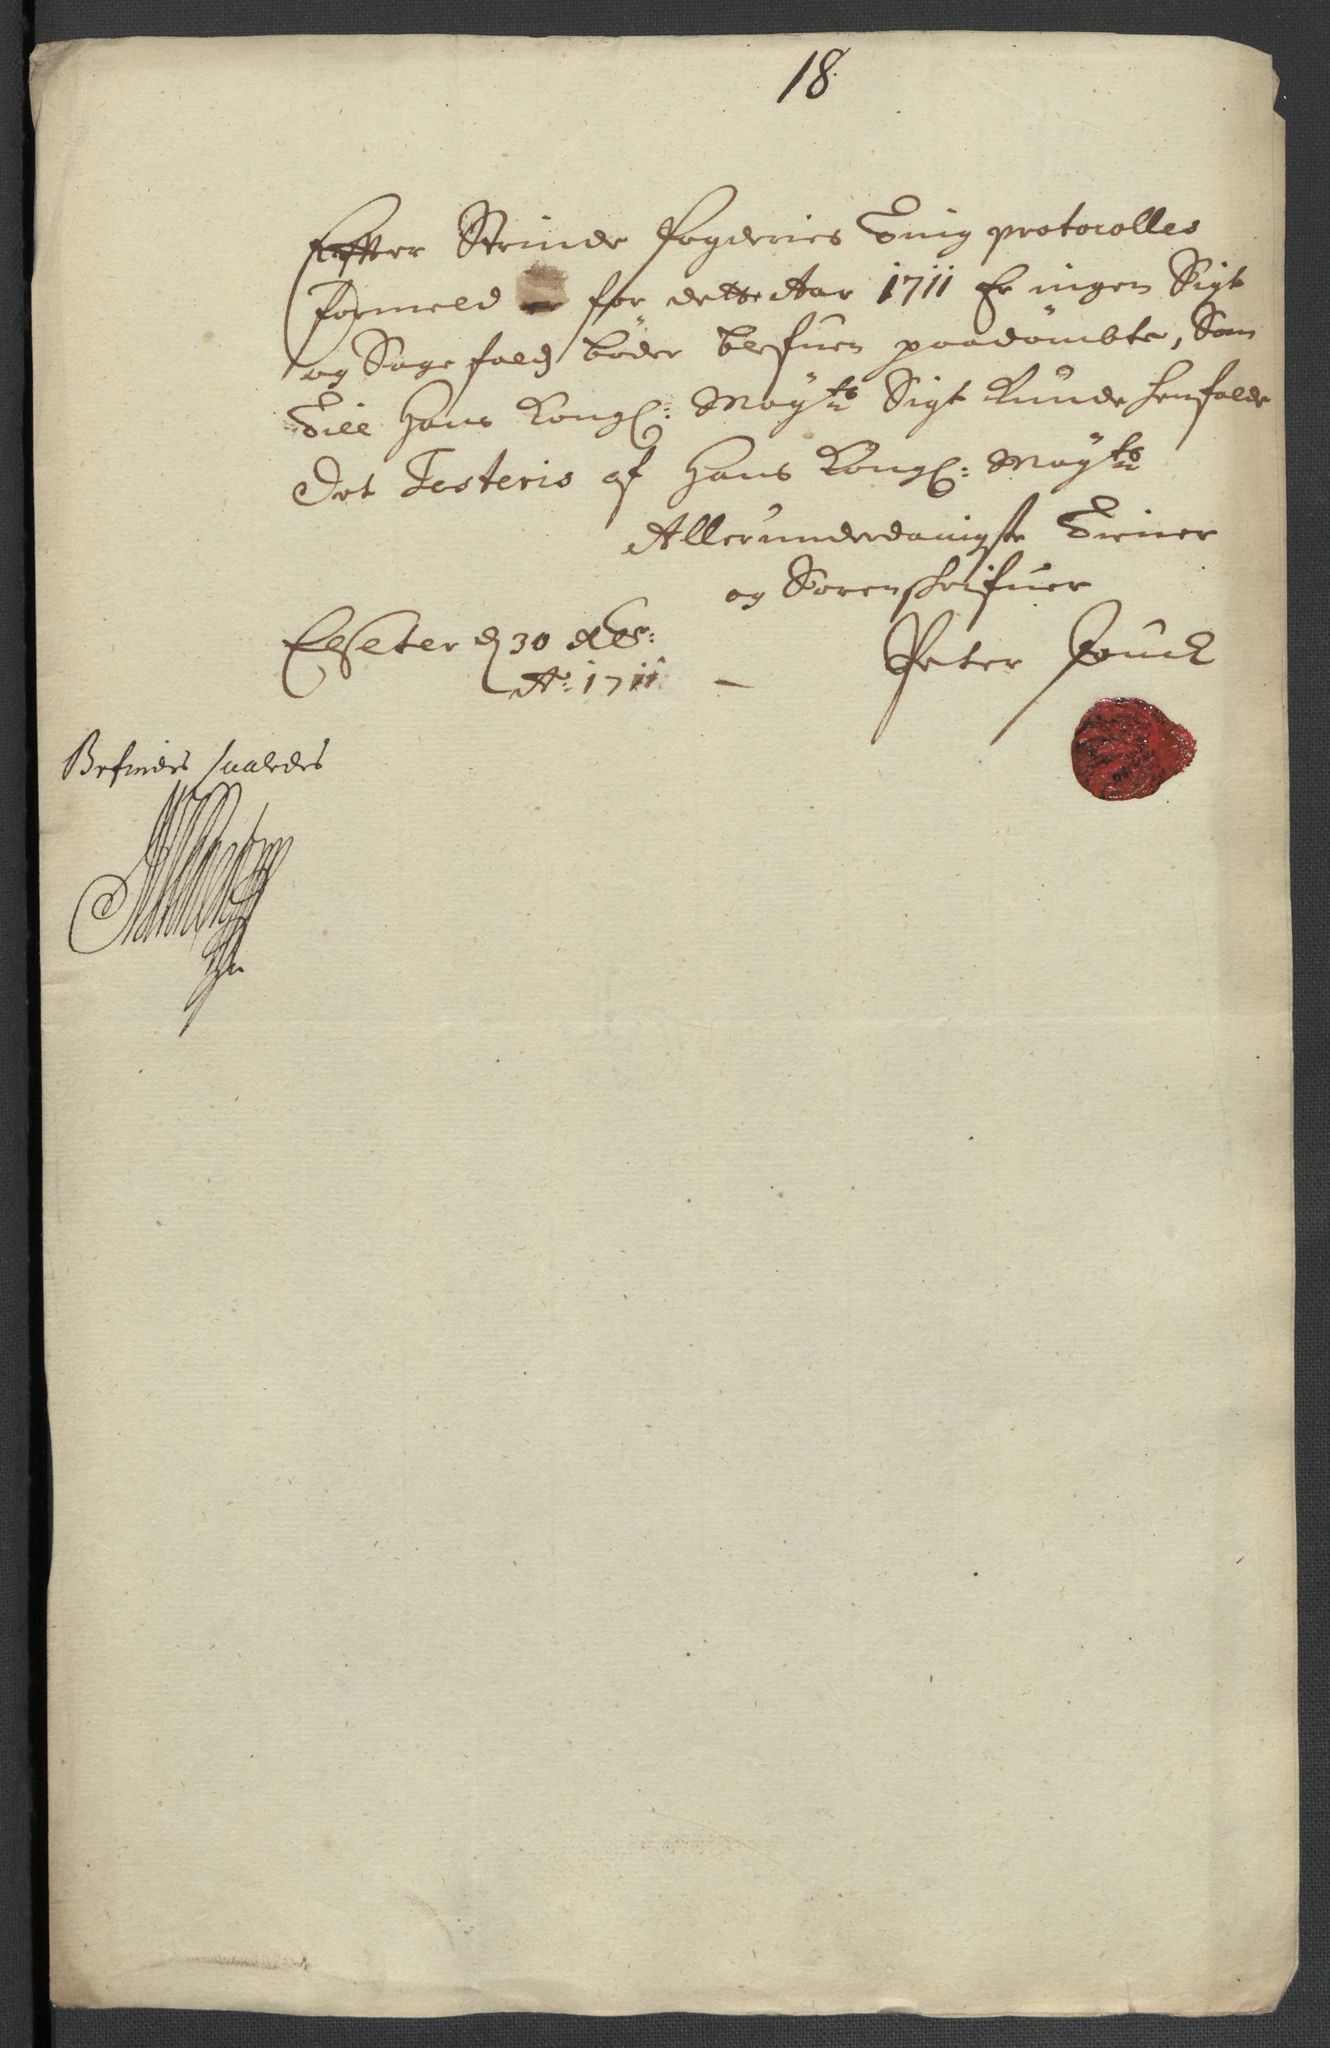 18
Effter Strinde fogderies Ting protocolles
formeld for dette Aar 1711 Er ingen Sigt
og Sagefalds bøder blefuen paadømbte, Som
Till Hans Kongl: Mayts Sigt Kunde henfalde
Det Testeris af Hans Kongl: Mayts
Allerunderdanigste Tiener
og Sorenskrifuer
Elseter d 30 xbr:
Ao: 1711 -
Peter
Befindes saaledes